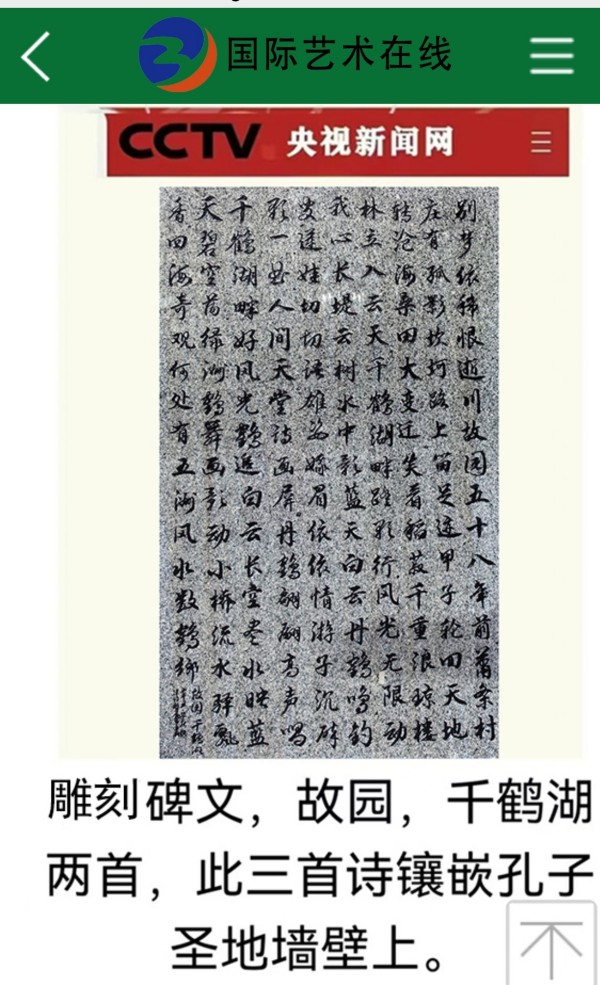 国际艺术在线
CCTV 央视新闻网
别梦依稀恨逝川故园五十八年前舊条村
庄有孤影坎坷路上留足迹甲子轮回天地
转沧海桑田大变迁笑看稻菽千重浪琼楼
林立入云天千鹤湖畔踪影行风光无限动
我心长堤云树水中影蓝天白云丹鹤鸣钓
叟逗娃切切语雄姿娥眉依依情游子沉醉
一曲人间天堂诗画屏丹鹤翩翩高声唱
千鹤湖畔好风光鹤追白云长空尽水映蓝
天碧空荷绿洲鹤舞画影动小桥流水驿飘
香四海奇观何处有五洲风水数鹤乡
雕刻碑文，故园，千鹤湖
两首，此三首诗镶嵌孔子
圣地墙壁上。